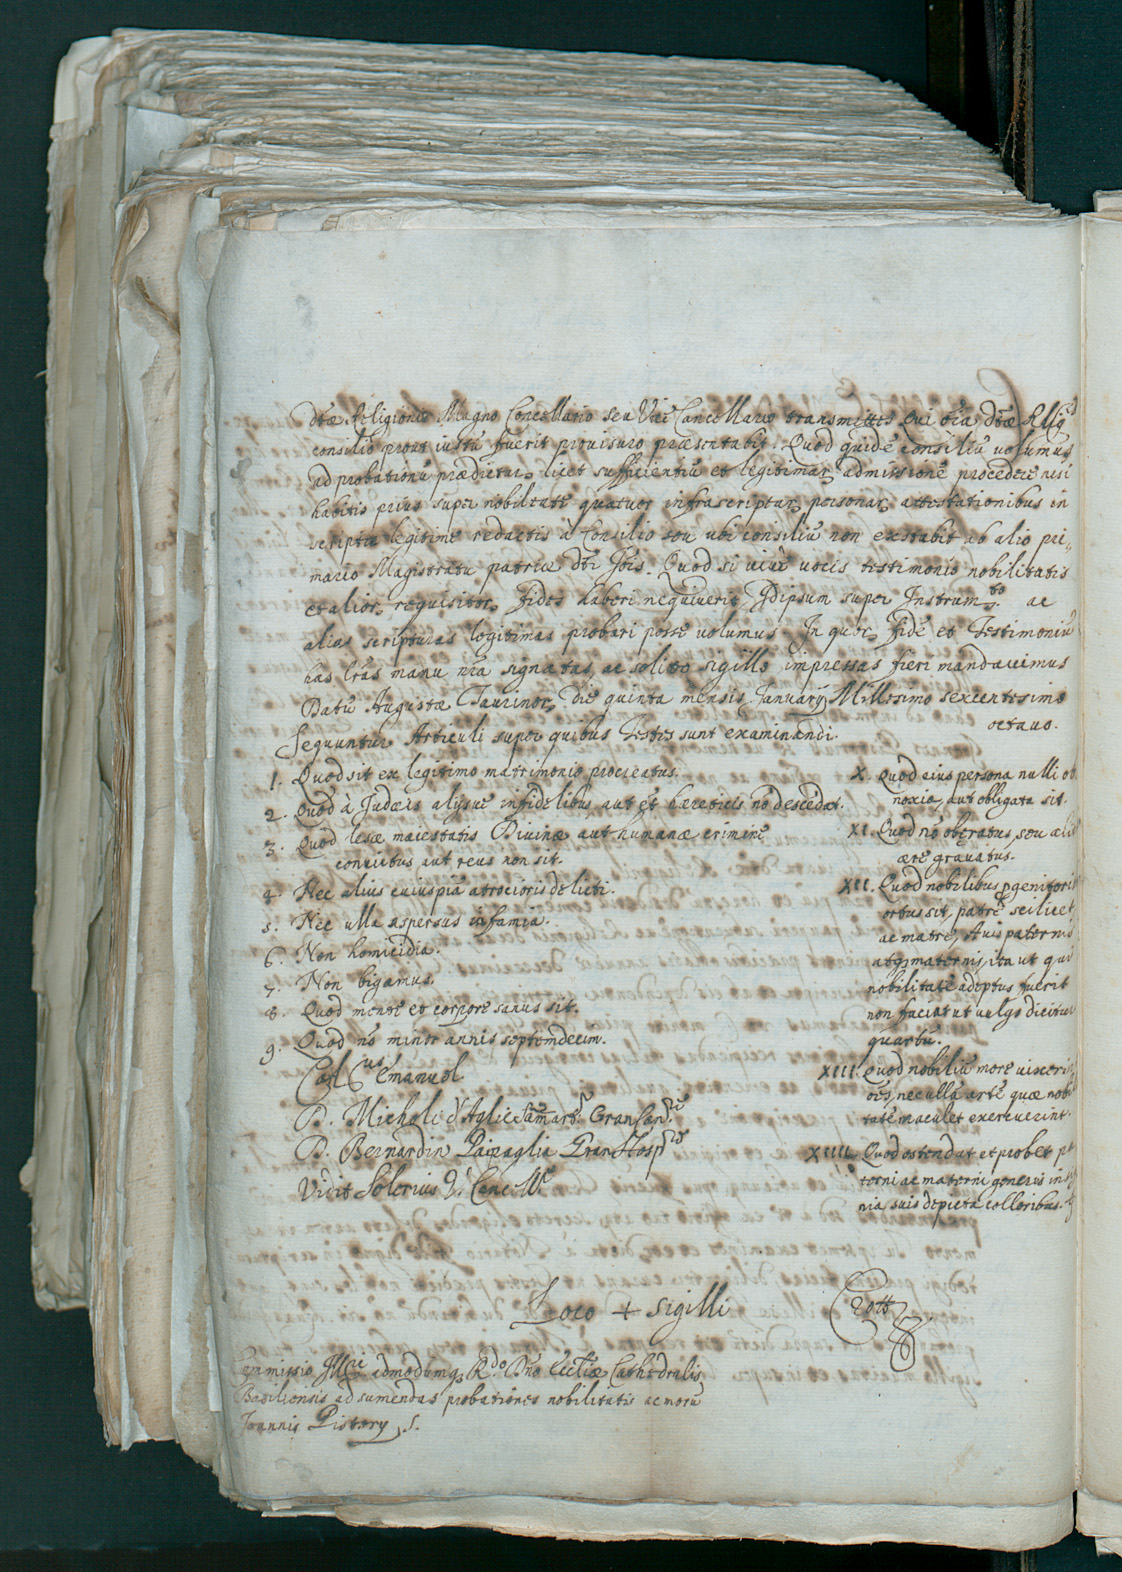 dtæ Religionis Magno Cancellario seu Vice Cancellario transmittes qui oia dtæ Relig
consilio prout iustu fuerit prouisuro præsentabit. Quod quidē consiliū volumus
ad probationū prædictar, licet sufficientiū et legitimar, admissionē procedere nisi
habitis prius super nobilitate quatuor infrascriptar, personar, attestationibus in
scriptis legitime redactis à Consilio seu ubi consiliū non exstabit ab alio pri„
mario Magistratu patriæ dti Jois. Quod si viuæ vocis testimonio nobilitatis
et alior, requisitor, fides haberi nequiverit Idipsum super Instrum.to ac
alias scripturas legitimas probari posse volumus. In quor, fidē et Testimoniū
has lras manu nra signatas, ac solito sigillo impressas fieri mandauimus
Datū Augustæ Taurinor, Die quinta mensis Januarij Millesimo sexcentesimo
octauo.
Sequuntur Articuli super quibus Testes sunt examinandi.
1. Quod sit ex legitimo matrimonio procreatus.
2. Quod à Judæis alijsue infidelibus aut et hæreticis nō descēdat.
3. Quod lesæ maiestatis Diuinæ aut humanæ crimine
conuictus aut reus non sit.
4. Nec alius cuiuspiā atrocioris delicti.
5. Nec ulla aspersus infamia.
6. Non homicidia.
7. Non bigamus.
8. Quod mente et corpore sanus sit.
9. Quod nō minor annis septemdecim.
X. Quod eius persona nulli ob
noxia, aut obligata sit.
XI. Quod nō oberatus, seu ali
ære grauatus.
XII. Quod nobilibus pgenitori
ortus sit, patre scilicet,
ac matre, Auis paternis
atq maternis, ita ut qui
nobilitatē adeptus fuerit
non faciat ut vulgo dicitur
quartū.
XIII. Quod nobiliū more vixerin
oes, nec ullā artē quæ nobi
tatē maculet exercuerint.
XIIII. Quod ostendat et probet pa
terni ac materni generis insig
nia suis depicta colloribus.
Carl Emanuel
D. Michele d'Aglie Gran
D. Bernardin Parpaglia Gran Hosp
Vidit Solerius V. Cancell.
Loco + Sigilli
Crotti
Commissio Ill admodumq R.do Dno Ecctiæ Cathedralis
Basiliensis ad sumendas probationes nobilitatis ac morū
Joannis Pistory, s.